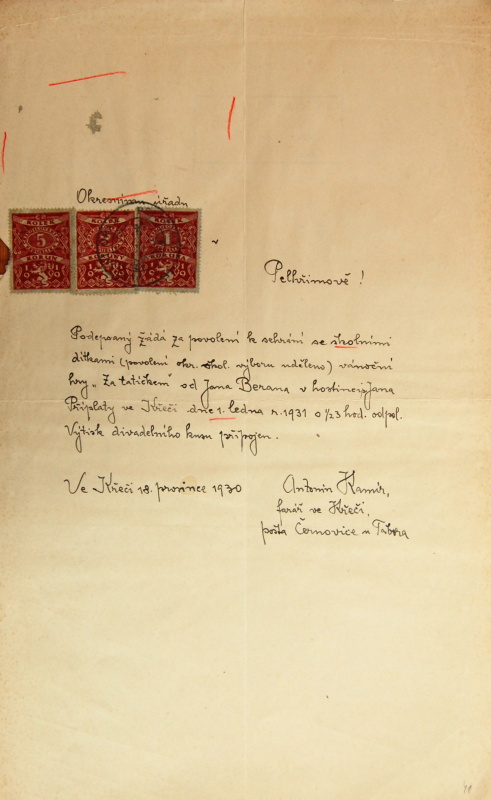 Okresnímu úřadu
KOLEK
5
KORUN
1930
KOLEK
KORUNY
1930
KOLEK
1
KORUNA
1930
v
Pelhřimově!
Podepsaný žádá za povolení k sehrání se školními
dítkami (povolení okr. škol. výboru uděleno) vánoční
hry „Za tatíčkem" od Jana Berana v hostinci p. Jana
Připlaty ve Křeči dne 1. ledna r. 1931 o 1/23 hod. odpol.
Výtisk divadelního kusu připojen.
Ve Křeči 18. prosince 1930
Antonín
farář ve Křeči,
pošta Černovice u Tábora